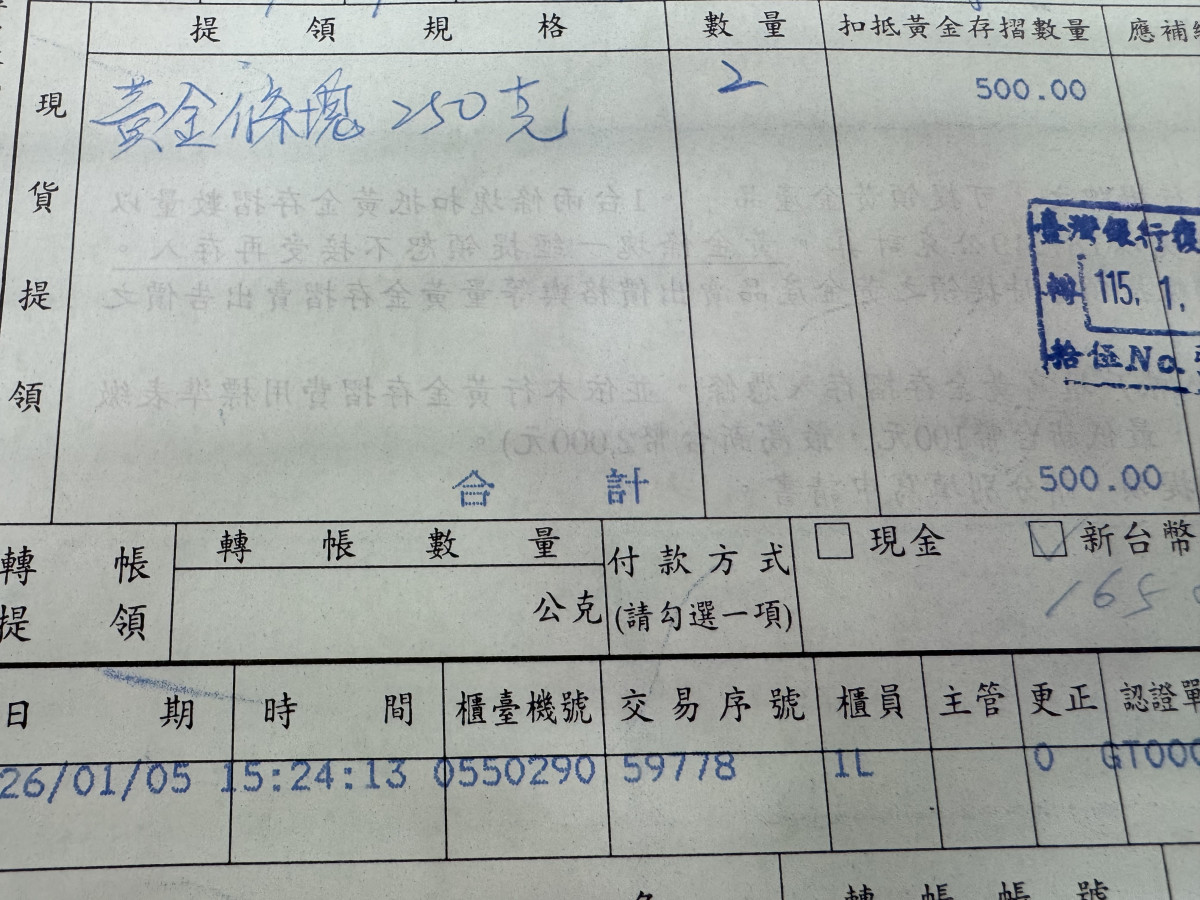 提領規格 數量 扣抵黃金存摺數量 應補
現貨提領
黃金條塊 250克 2 500.00
臺灣銀行
115. 1.
拾伍No.
合計 500.00
轉帳提領 轉帳數量 付款方式 □現金 ☑新台幣
公克 (請勾選一項) 165
日期 時間 櫃臺機號 交易序號 櫃員 主管 更正 認證單
26/01/05 15:24:13 0550290 59778 1L 0 GT000
轉帳帳號